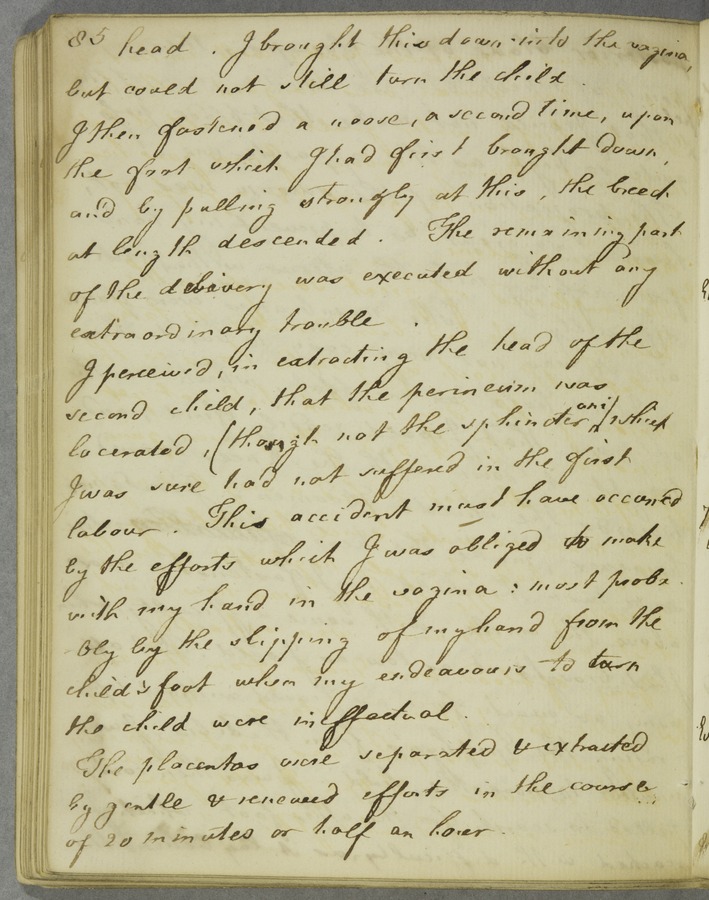 85 head. I brought this down into the vagina,
but could not still turn the child.
I then fastened a noose, a second time, upon
the foot which I had first brought down,
and by pulling strongly at this, the breech
at length descended. The remaining part
of the delivery was executed without any
extraordinary trouble.
I perceived, in extracting the head of the
second child, that the perineum was
lacerated, (though not the sphincter ani) which
I was sure had not suffered in the first
labour. This accident must have occurred
by the efforts which I was obliged to make
with my hand in the vagina: most proba
bly by the slipping of my hand from the
child's foot when my endeavours to turn
the child were ineffectual.
The placentas were separated & extracted
by gentle & renewed efforts in the course
of 20 minutes or half an hour.